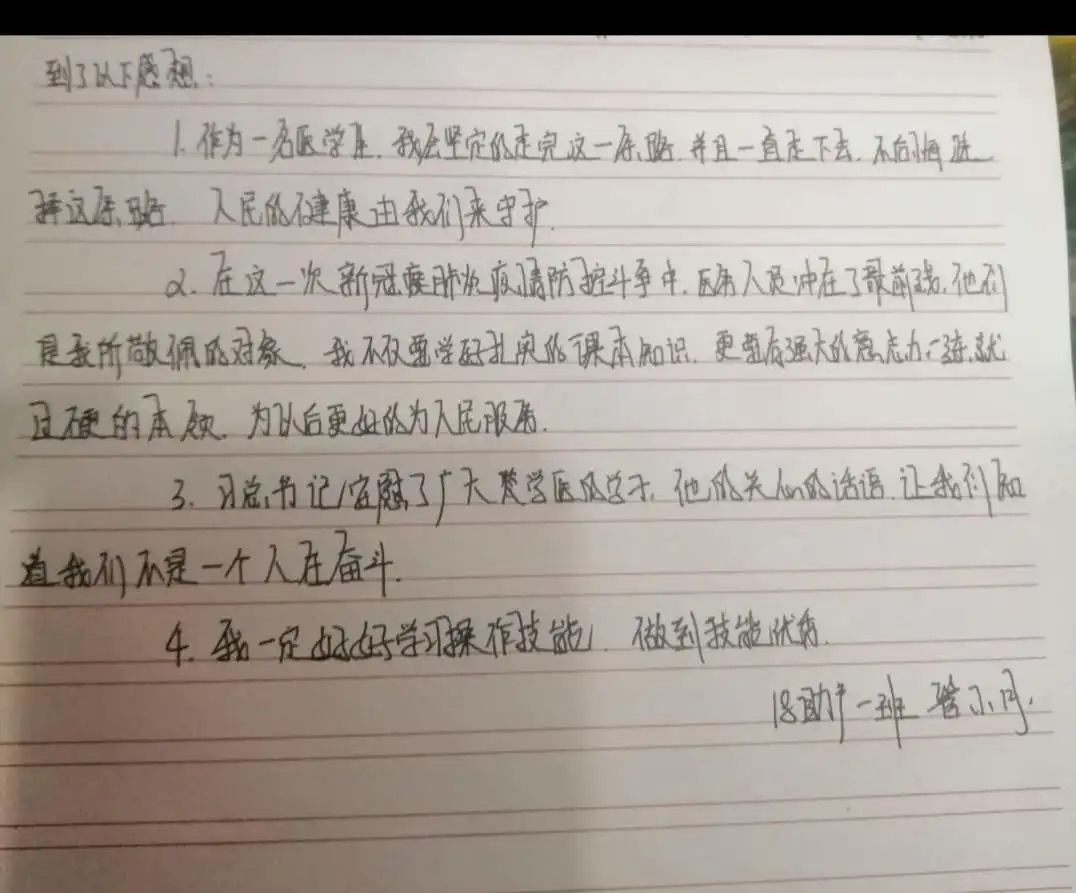 到了以下感想：
1. 作为一名医学生，我会坚定的走完这一条路，并且一直走下去，不后悔选
择这条路，人民的健康由我们来守护.
2. 在这一次新冠肺炎疫情防控斗争中，医务人员冲在了最前线，他们
是我所敬佩的对象，我不仅要学好扎实的课本知识，更要有强大的意志力，练就
过硬的本领，为以后更好的为人民服务.
3. 习总书记安慰了广大学医的学子，他的关心的话语，让我们知
道我们不是一个人在奋斗.
4. 我一定好好学习操作技能，做到技能优秀.
18助产一班